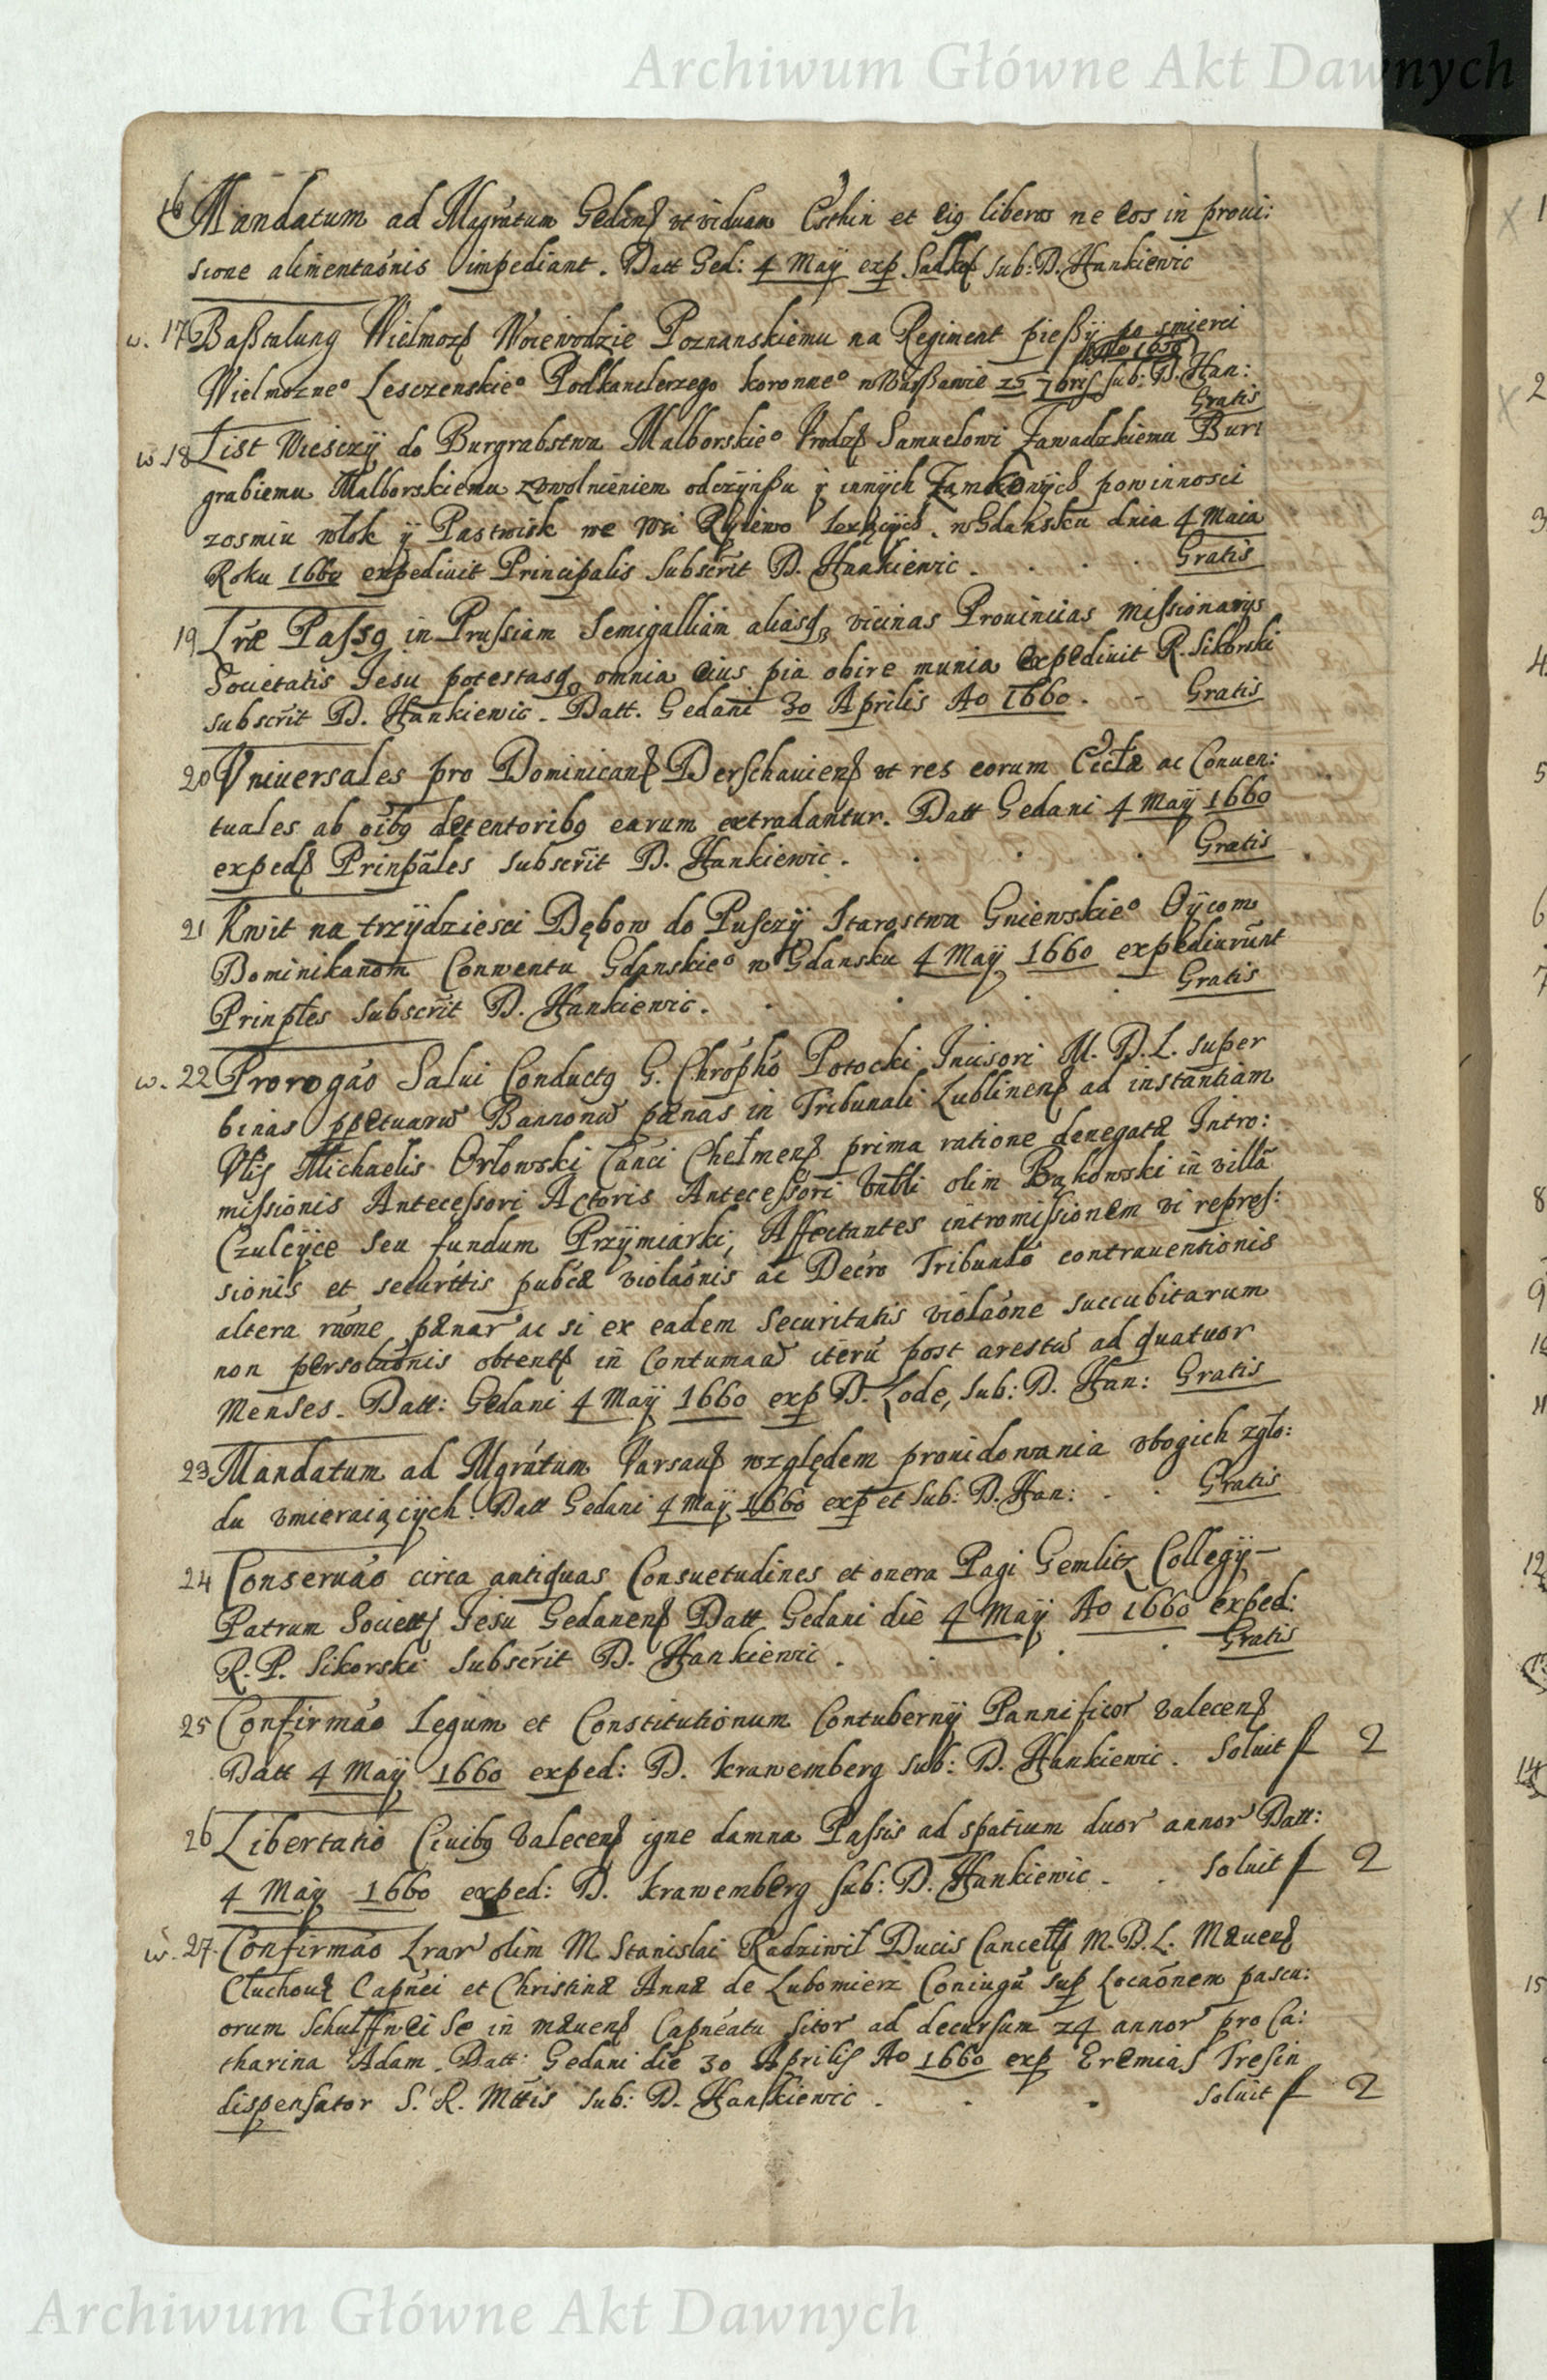 Archiwum Główne Akt Dawnych
16 Mandatum ad Mgrátum Gedanę vt viduam et eig liberos ne eos in proui:
sione alimentaónis impediant. Datt Ged: 4 Maÿ exp sub: D. Hankiewic
w. 17 Baßtalung Wielmoz Woiewodzie Poznanskiemu na Regiment pießÿ po smierci
Wielmozne° Lesczenskie° Podkanclerzego koronne° w Warßawie 25 7bris Ao 1659 sub: D. Han:
Gratis
w. 18 List Wiesczÿ do Burgrabstwa Malborskie° Vrodz Samuelowi Zawadzkiemu Bur:
grabiemu Malborskiemu zvwolnieniem odczÿnßu ÿ innÿch Zamkowÿch powinnosci
zosmiu włok ÿ Pastwisk we Wsi Ryiewo lezącÿch. w Gdansku dnia 4 Maia
Roku 1660 expediuit Principalis Subscrit D. Hankiewic. Gratis
19 Lrae Passg in Prussiam Semigalliam aliasq vicinas Prouincias missionarijs
Societatis Jesu potestasq omnia eius pia obire munia expediuit R. Sikorski
subscrit D. Hankiewic. Datt. Gedani 30 Aprilis Ao 1660. - Gratis
20 Vniuersales pro Dominicanę Derschauienę vt res eorum Eccłae ac Conuen:
tuales ab oibg detentoribg earum extradantur. Datt Gedani 4 Maÿ 1660
expedę Prinpáles subscrit D. Hankiewic. Gratis
21 Kwit na trzÿdziesci Dębow do Pusczÿ Starostwa Gniewskie° Oÿcom
Dominikanom Conwentu Gdanskie° w Gdansku 4 Maÿ 1660 expediurunt
Prinptes subscrit D. Hankiewic. Gratis
w. 22 Prorogáo Salui Conductg G. Chrópho Potocki Incisori M. D. L. super
binas ppetuarū Bannonū paenas in Tribunali Lublinenę ad instantiam
Vłis Michaelis Orłowski Ianci Chełmenę prima ratione denegatae Intro:
missionis Antecessori Actoris Antecessori olim Bąkowski in villa
Czulcÿce seu fundum Przÿmiarki, Affectantes intromissionem vi repres:
sionis et securittis pubcae violaónis ac Decro Tribunló contrauentionis
altera raóne paenar ac si ex eadem Securitatis violaóne succubitarum
non persoluónis obtentę in Contumaā iterū post arestū ad quatuor
Menses. Datt: Gedani 4 Maÿ 1660 exp D. Lode, sub: D. Han: Gratis
23 Mandatum ad Mgrátum Varsauę względem prouidowania vbogich zgło:
du vmieraiącÿch. Datt Gedani 4 Maÿ 1660 exp et sub: D. Han: . . Gratis
24 Conseruáo circa antiquas Consuetudines et onera Pagi Gemlitz Collegÿ -
Patrum Societtę Jesu Gedanenę Datt Gedani die 4 Maÿ Ao 1660 exped:
R. P. Sikorski subscrit D. Hankiewic. Gratis
25 Confirmáo Legum et Constitutionum Contubernÿ Pannificor valecenę
Datt 4 Maÿ 1660 exped: D. Krawemberg sub: D. Hankiewic. Soluit f 2
26 Libertatio Ciuibg valecenę igne damna Passis ad spatium duor annor Datt:
4 Maÿ 1660 exped: D. Krawemberg sub: D. Hankiewic. . Soluit f 2
w. 27. Confirmáo Lrar olim M. Stanislai Radziwił Ducis Cancellę M. D. L. Maeuenę
Cłuchouę Capnei et Christinae Annae de Lubomierz Coniugū sup Locaónem pascu:
orum se in maeuenę Capneatu sitor ad decursum 24 annor pro Ca:
tharina Adam. Datt: Gedani die 30 Aprilis Ao 1660 exp Eremias Tresin
dispensator S. R. Mttis sub: D. Hankiewic. . . soluit f 2
Archiwum Główne Akt Dawnych